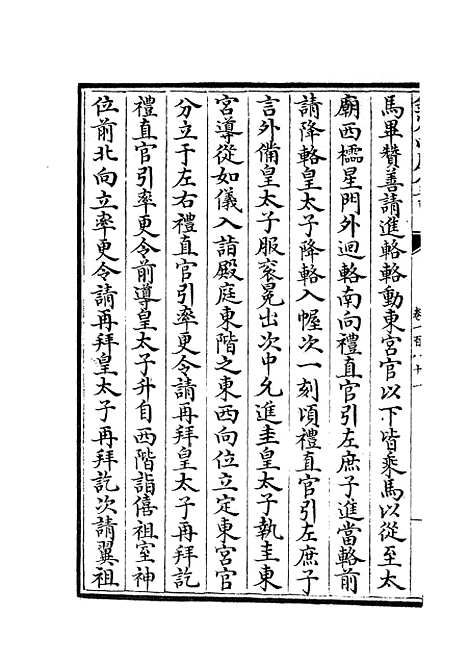 馬畢贊善請進輅輅動東宮官以下皆乘馬以從至太
廟西櫺星門外迴輅南向禮直官引左庶子進當輅前
請降輅皇太子降輅入幄次一刻頃禮直官引左庶子
言外備皇太子服衮冕出次中允進圭皇太子執圭東
宮導從如儀入詣殿庭東階之東西向位立定東宮官
分立于左右禮直官引率更令請再拜皇太子再拜訖
禮直官引率更令前導皇太子升自西階詣僖祖室神
位前北向立率更令請再拜皇太子再拜訖次請翼祖